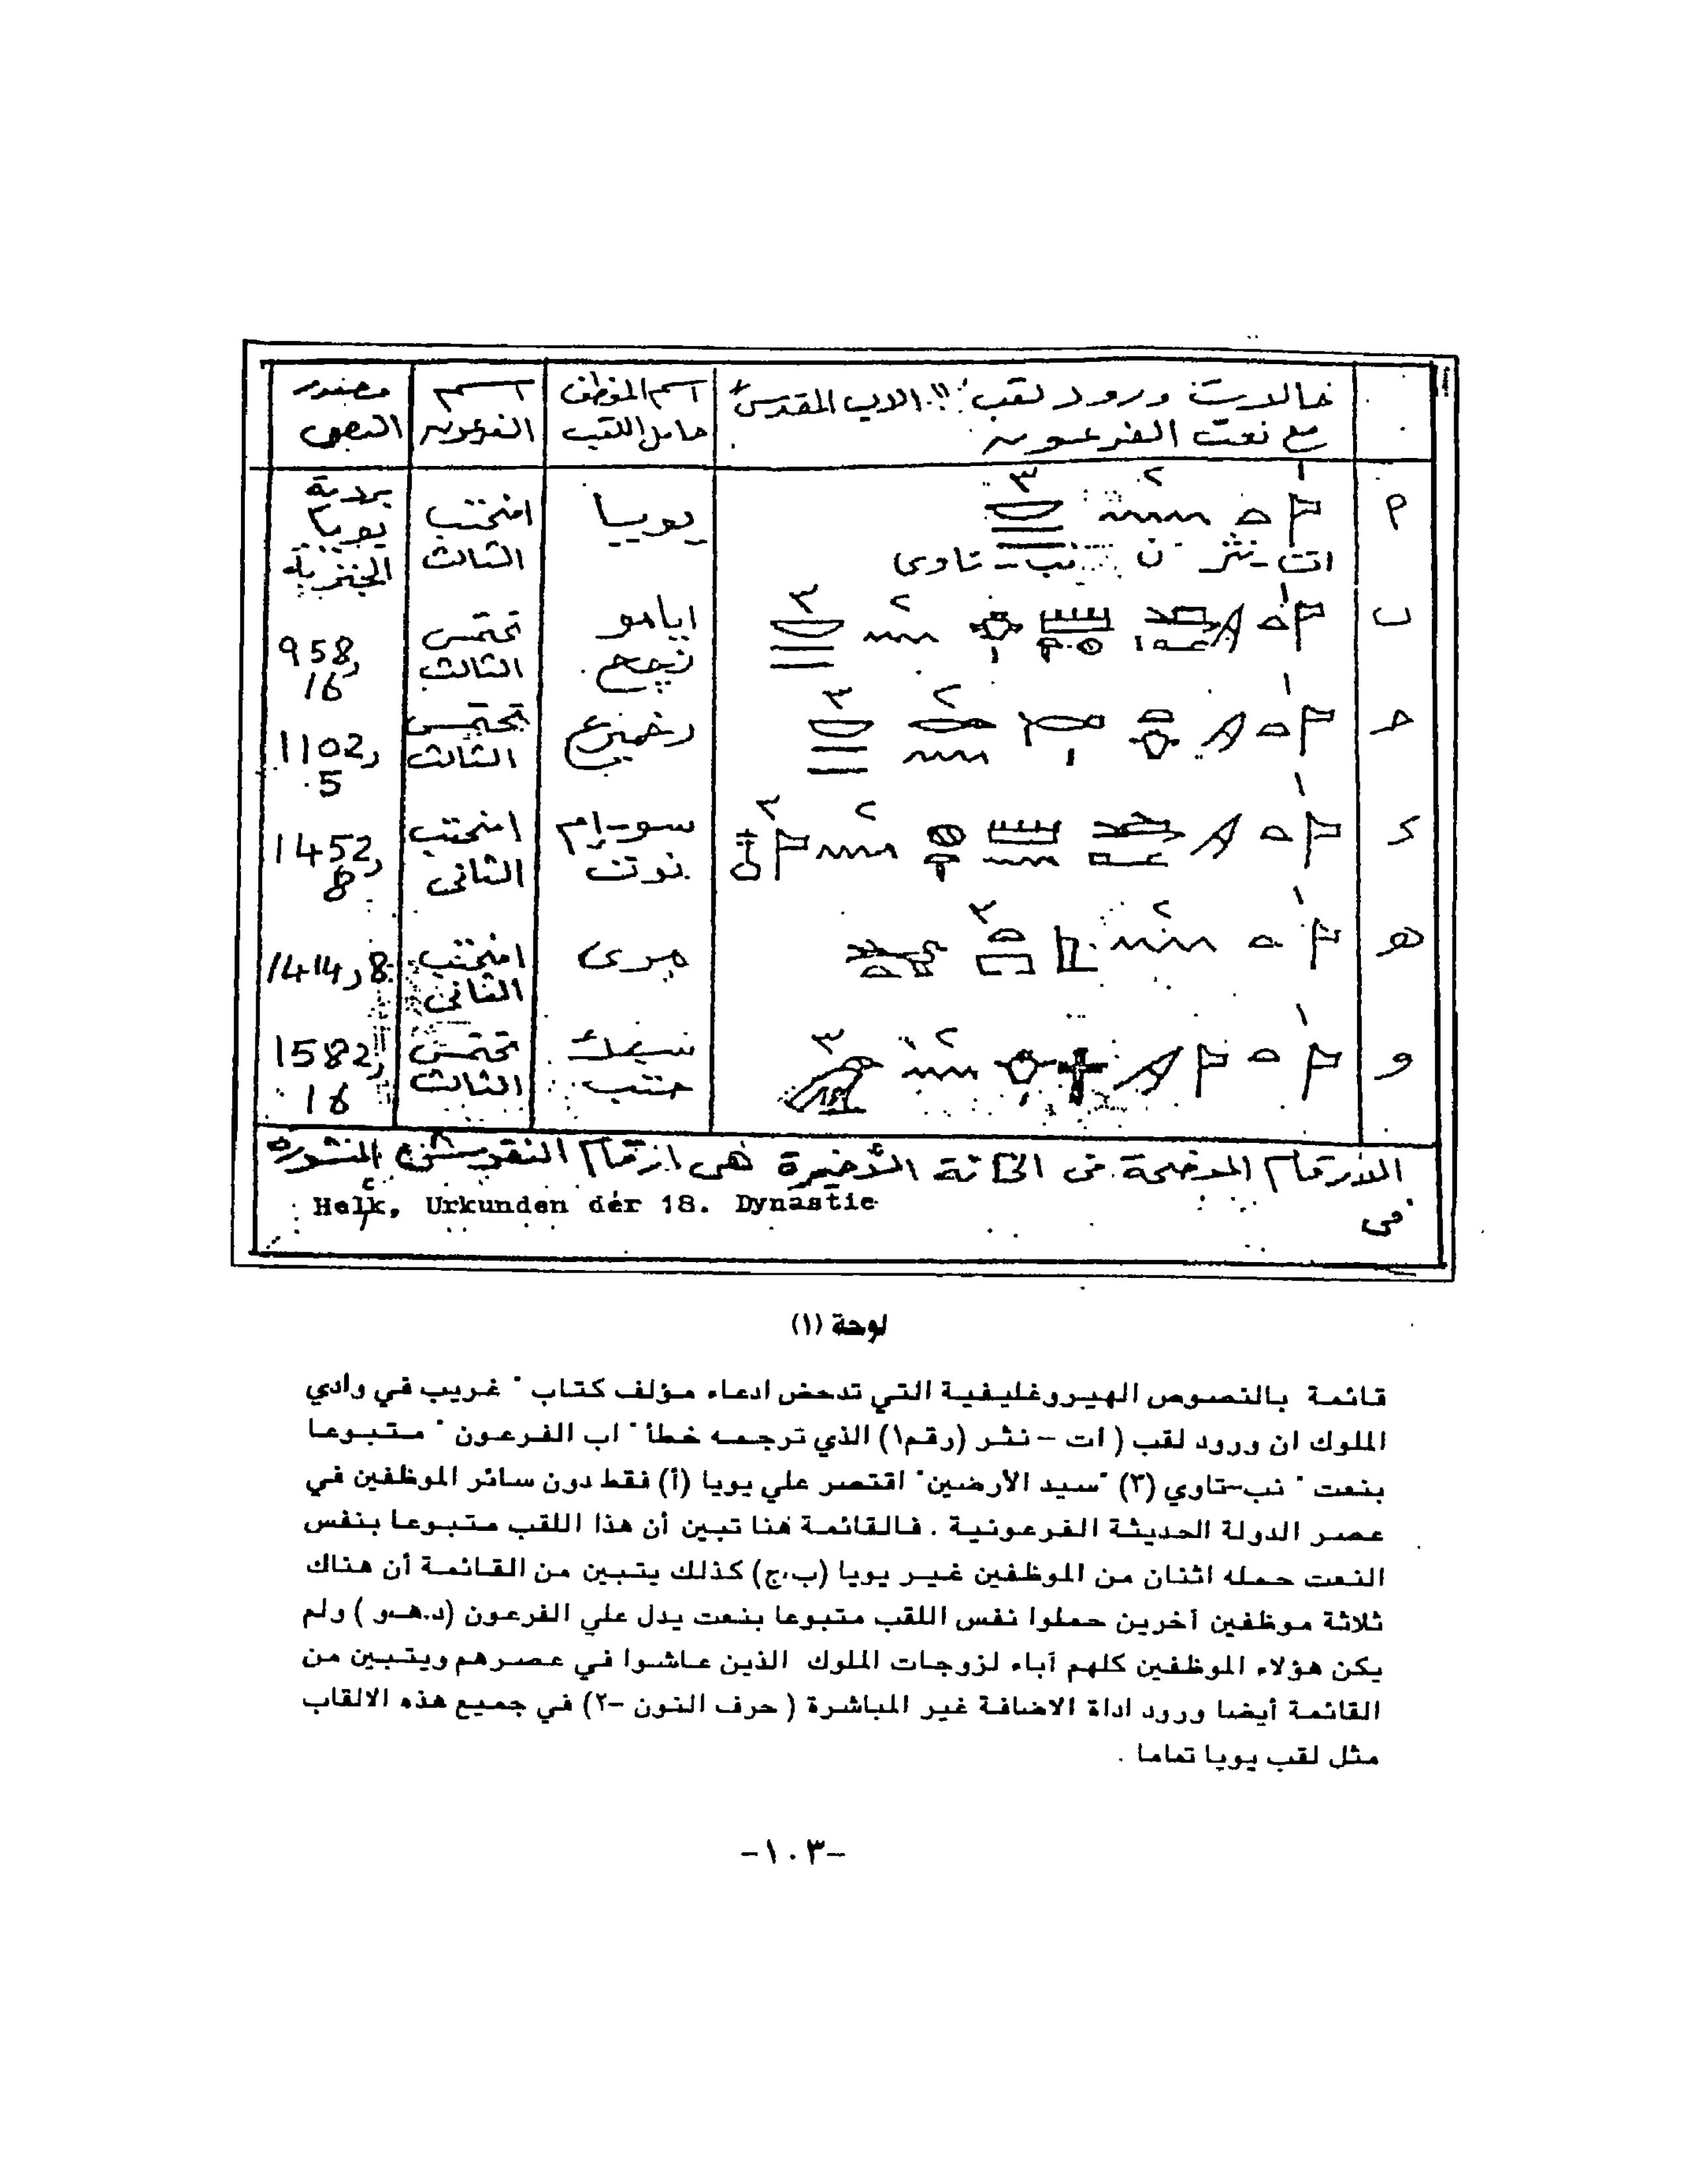 حالات ورود لقب "الاب المقدس"
مع نعت الفرعون
اسم الموظف
حامل اللقب
اسم
الفرعون
مصدر
النص
أ
١ ٢ ٣
ات - نثر ن نب - تاوى
يويا
امنحتب
الثالث
بردية
يويا
الجنزية
ب
١ ٢ ٣
تحتمس
الثالث
958,
16
حـ
١ ٢ ٣
رخميرع
تحتمس
الثالث
1102,
5
د
١ ٢ ٣
امنحتب
الثانى
1452,
8
هـ
١ ٢ ٣
مرى
امنحتب
الثانى
1414,8
و
١ ٢ ٣
حتب
تحتمس
الثالث
1582,
16
الأرقام الموضحة فى الخانة الأخيرة هى ارقام النقوش المنشورة
فى
Helk, Urkunden der 18. Dynastie
لوحة (١)
قائمة بالنصوص الهيروغليفية التي تدحض ادعاء مؤلف كتاب " غريب في وادي
الملوك ان ورود لقب ( ات - نثر (رقم١) الذي ترجمه خطأ " اب الفرعون " متبوعا
بنعت " نب-تاوي (٣) "سيد الأرضين" اقتصر علي يويا (أ) فقط دون سائر الموظفين في
عصر الدولة الحديثة الفرعونية . فالقائمة هنا تبين أن هذا اللقب متبوعا بنفس
النعت حمله اثنان من الموظفين غير يويا (ب،ج) كذلك يتبين من القائمة أن هناك
ثلاثة موظفين آخرين حملوا نفس اللقب متبوعا بنعت يدل علي الفرعون (د.هـ.و ) ولم
يكن هؤلاء الموظفين كلهم آباء لزوجات الملوك الذين عاشوا في عصرهم ويتبين من
القائمة أيضا ورود اداة الاضافة غير المباشرة ( حرف النون -٢) في جميع هذه الالقاب
مثل لقب يويا تماما .
-١٠٣-